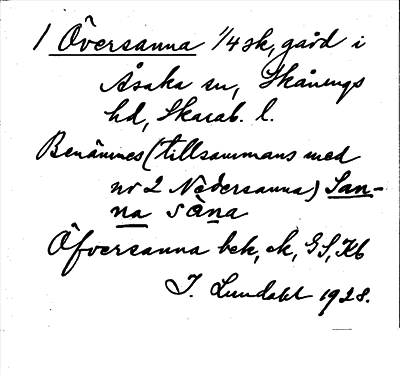 1 Översanna 1/4 sk, gård i
Åsaka sn, Skånings
hd, Skarab. l.
Benämnes (tillsammans med
nr 2 Nedersanna) San-
na sàna
Öfversanna bek, ek, GS, Kb
I. Lundahl 1928.